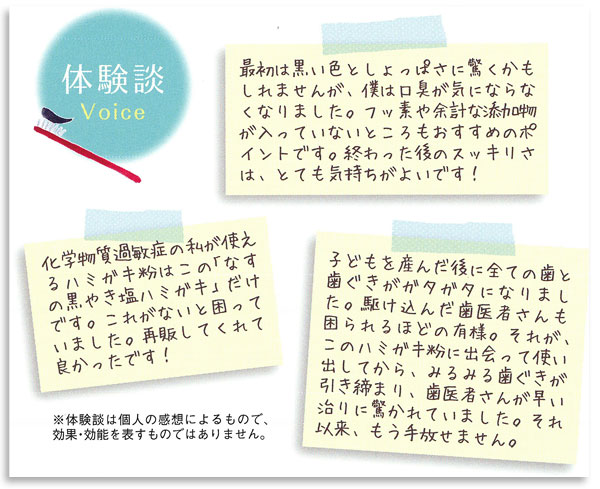 体験談
Voice
最初は黒い色としょっぱさに驚くかも
しれませんが、僕は口臭が気にならな
くなりました。フッ素や余計な添加物
が入っていないところもおすすめのポ
イントです。終わった後のスッキリさ
は、とても気持ちがよいです!
化学物質過敏症の私が使え
るハミガキ粉はこの「なす
の黒やき塩ハミガキ」だけ
です。これがないと困って
いました。再販してくれて
良かったです!
子どもを産んだ後に全ての歯と
歯ぐきががタガタになりまし
た。駆け込んだ歯医者さんも
困られるほどの有様。それが、
このハミガキ粉に出会って使い
出してから、みるみる歯ぐきが
引き締まり、歯医者さんが早い
治りに驚かれていました。それ
以来、もう手放せません。
※体験談は個人の感想によるもので、
効果・効能を表すものではありません。